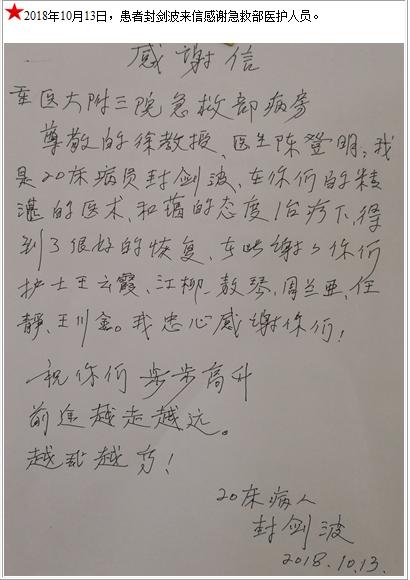 ★2018年10月13日，患者封剑波来信感谢急救部医护人员。
感谢信
至医大附三院急救部病房
尊敬的徐教授、医生陈登明，我
是20床病员封剑波，在你们的精
湛的医术、和蔼的态度治疗下，得
到了很好的恢复，在此谢谢你们
护士王云霞、江柳、敖琴、周兰亚、任
静、王川金。我忠心感谢你们！
祝你们步步高升
前途越走越远。
越越
20床病人
封剑波
2018.10.13.